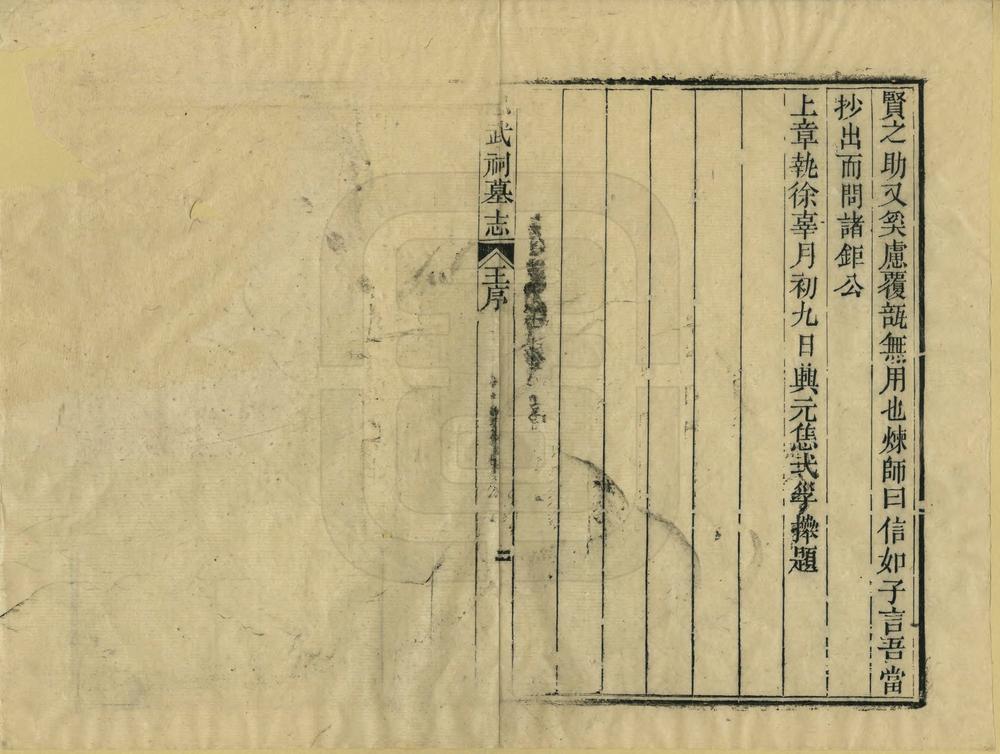 賢之助又奚慮覆瓿無用也煉師曰信如子言吾當
抄出而問諸鉅公
上章執徐辜月初九日興元恁弐學操題
武祠墓志 王序 二